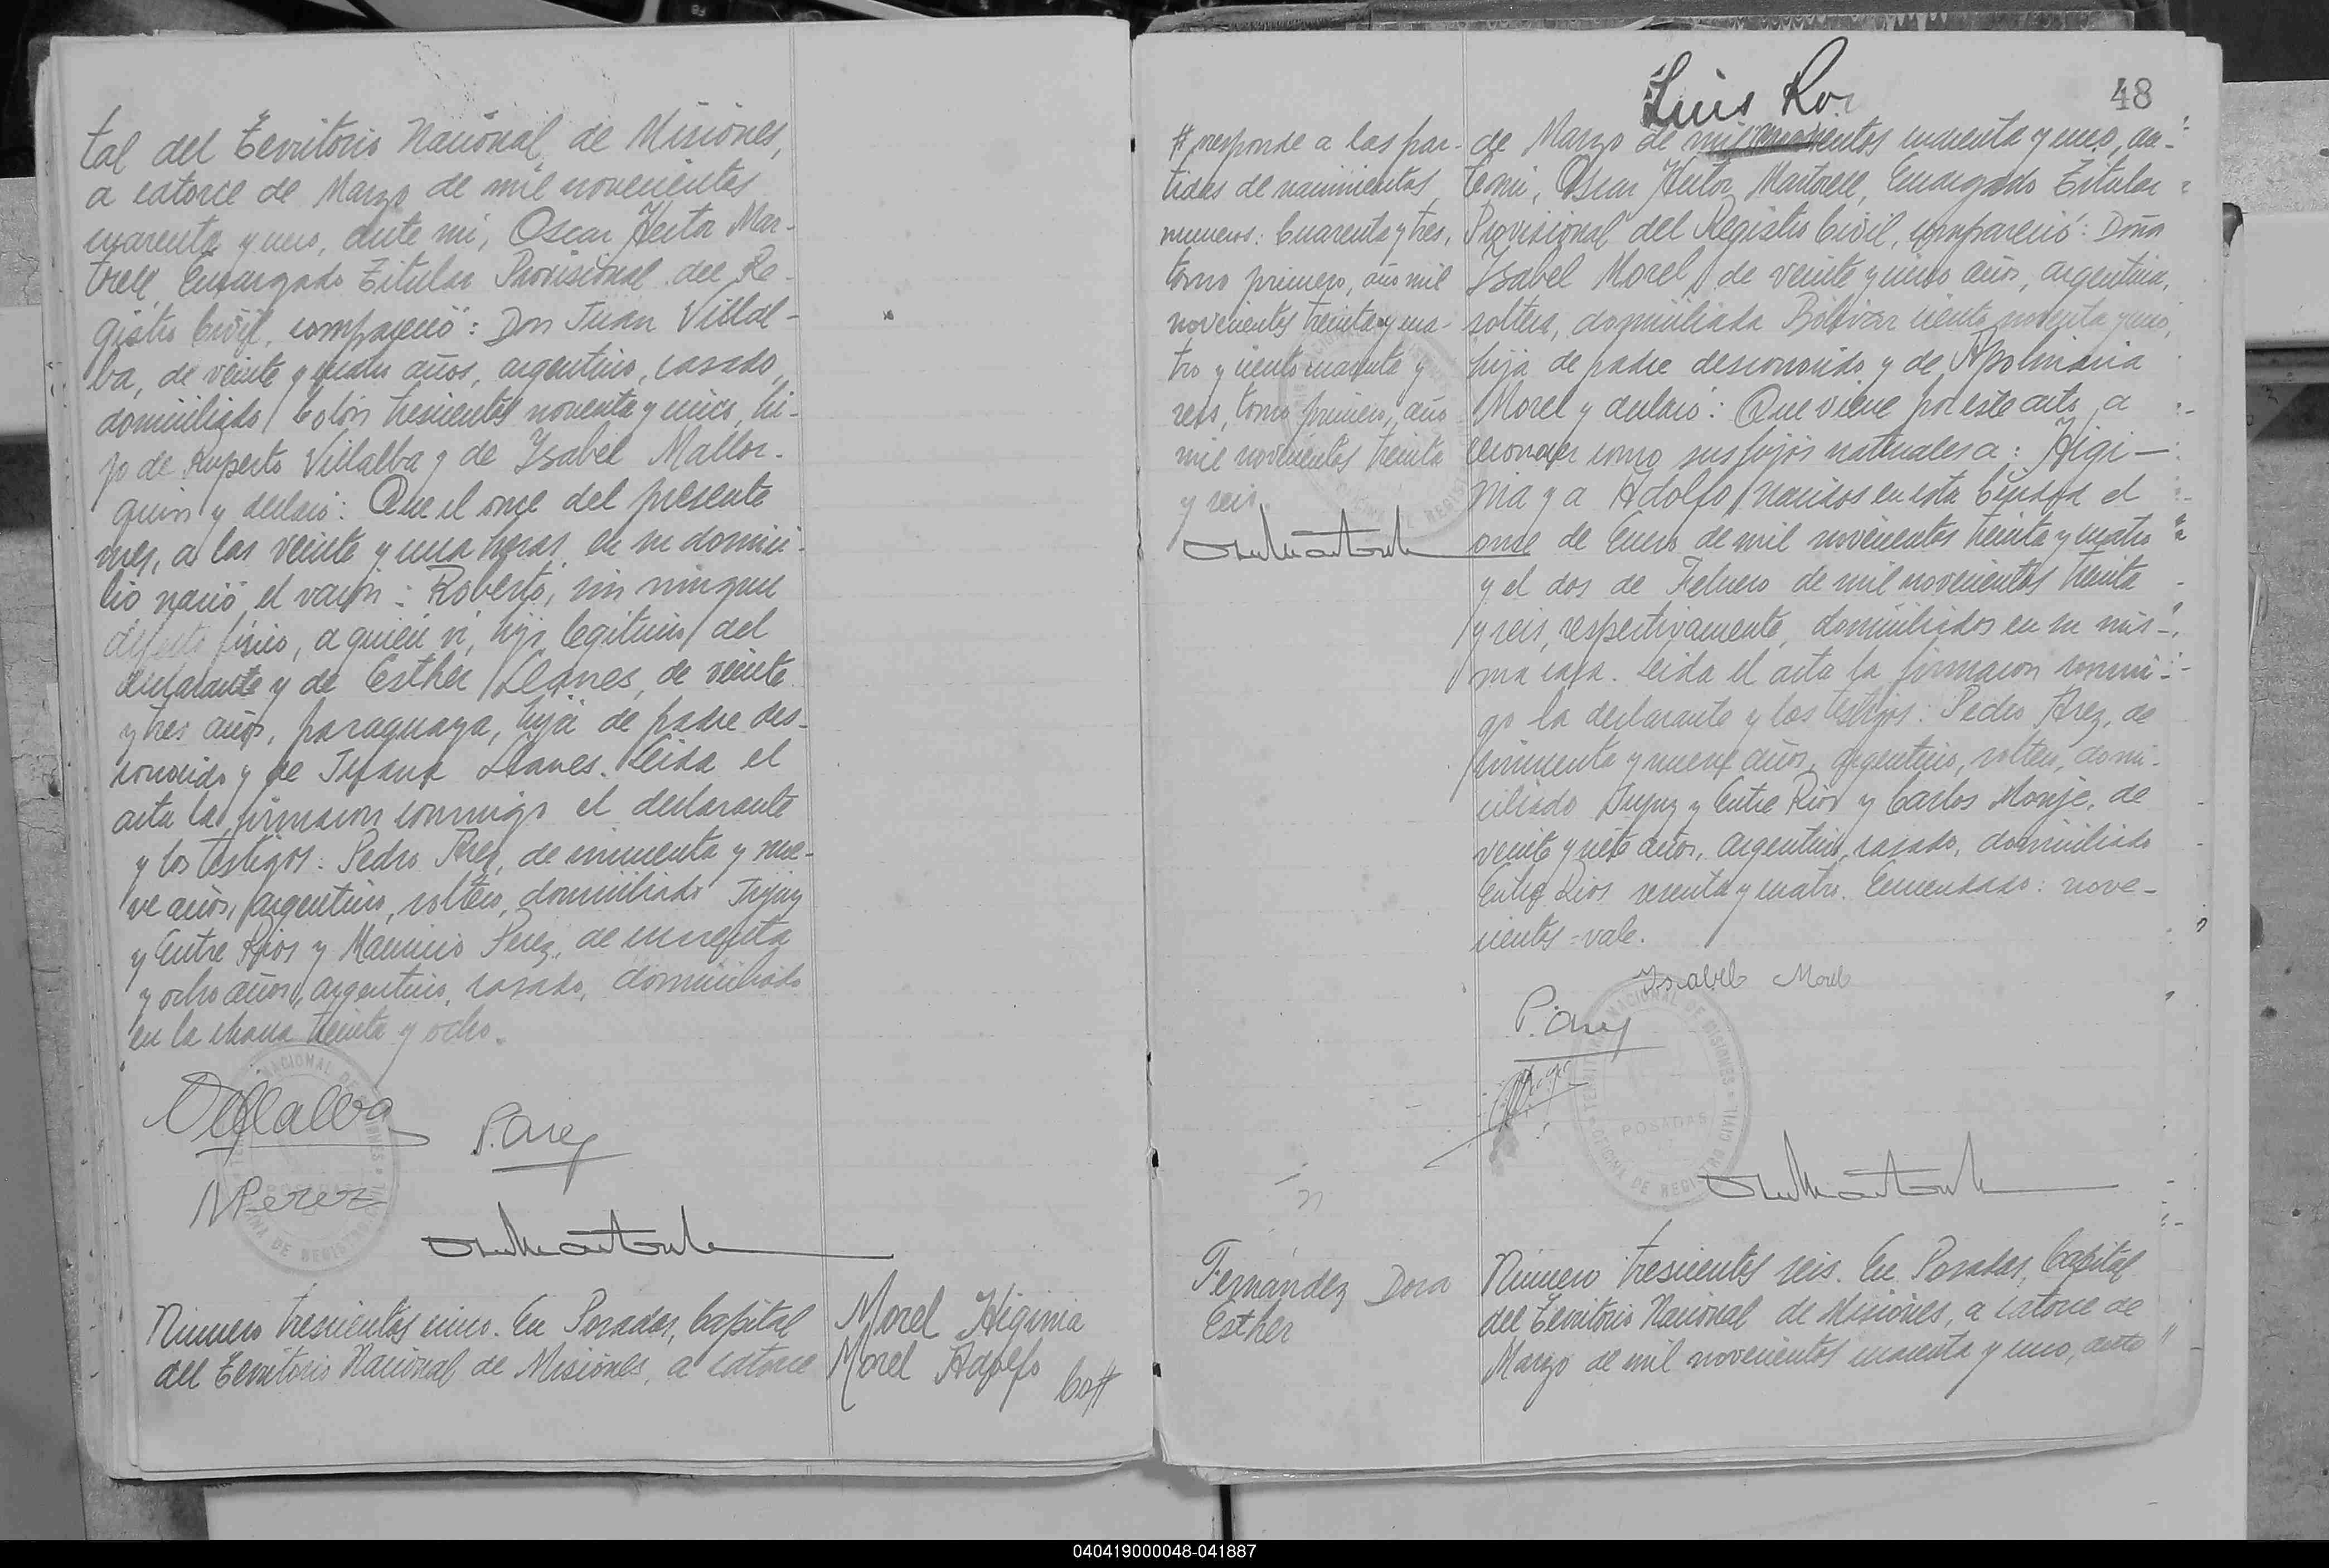 tal del Territorio Nacional, de Misiones,
a catorce de Marzo de mil novecientos
cuarenta y uno, ante mi, Oscar Hector Mar-
torell, Encargado Titular Provisional del Re-
gistro Civil, compareció: Don Juan Villal-
ba, de veinte y cuatro años, argentino, casado,
domiciliado Colón trescientos noventa y cinco, hi-
jo de Ruperto Villalba y de Ysabel Mallor-
quin y declaró: Que el once del presente
mes, a las veinte y una horas, en su domici-
lio nació el varón: Roberto, sin ningun
defecto fisico, a quien vi, hijo legitimo del
declarante y de Esther Llanes, de veinte
y tres años, paraguaya, hija de padre des-
conocido y de Llanes. Leida el
acta la firmaron conmigo el declarante
y los testigos: Pedro Arez, de cincuenta y nue-
ve años, argentino, soltero, domiciliado Jujuy
y Entre Rios y Mauricio Perez, de cuarenta
y ocho años, argentino, casado, domiciliado
en la chacra treinta y ocho.
Villalba
P. Arez
M Perez
Numero trescientos cinco. En Posadas, Capital
del Territorio Nacional de Misiones, a catorce
Morel Higinia
Morel Adolfo
Co#
Luis
48
# rresponde a las par-
tidas de nacimientos,
numeros: Cuarenta y tres,
tomo primero, año mil
novecientos treinta y cua-
tro y ciento cuarenta y
seis, tomo primero, año
mil novecientos treinta
y seis.
de Marzo de mil novecientos cuarenta y uno, an-
te mi, Oscar Hector Martorell, Encargado Titular
Provisional del Registro Civil, compareció: Doña
Ysabel Morel, de veinte y cinco años, argentina,
soltera, domiciliada Bolivar ciento noventa y uno,
hija de padre desconocido y de Apolinaria
Morel y declaró: Que viene por este acto, a
reconocer como sus hijos naturales a: Higi-
nia y a Adolfo, nacidos en esta Ciudad el
once de Enero de mil novecientos treinta y cuatro
y el dos de Febrero de mil novecientos treinta
y seis, respectivamente, domiciliados en su mis-
ma casa. Leida el acta la firmaron conmi-
go la declarante y los testigos: Pedro Arez, de
cincuenta y nueve años, argentino, soltero, domi-
ciliado Jujuy y Entre Rios y Carlos Monje, de
veinte y siete años, argentino, casado, domiciliado
Entre Rios sesenta y cuatro. Enmendado: nove-
cientos - vale.
Ysabel Morel
P. Arez
POSADAS
Fernandez Dora
Esther
Numero trescientos seis. En Posadas, Capital
del Territorio Nacional de Misiones, a catorce de
Marzo de mil novecientos cuarenta y uno, ante
040419000048-041887